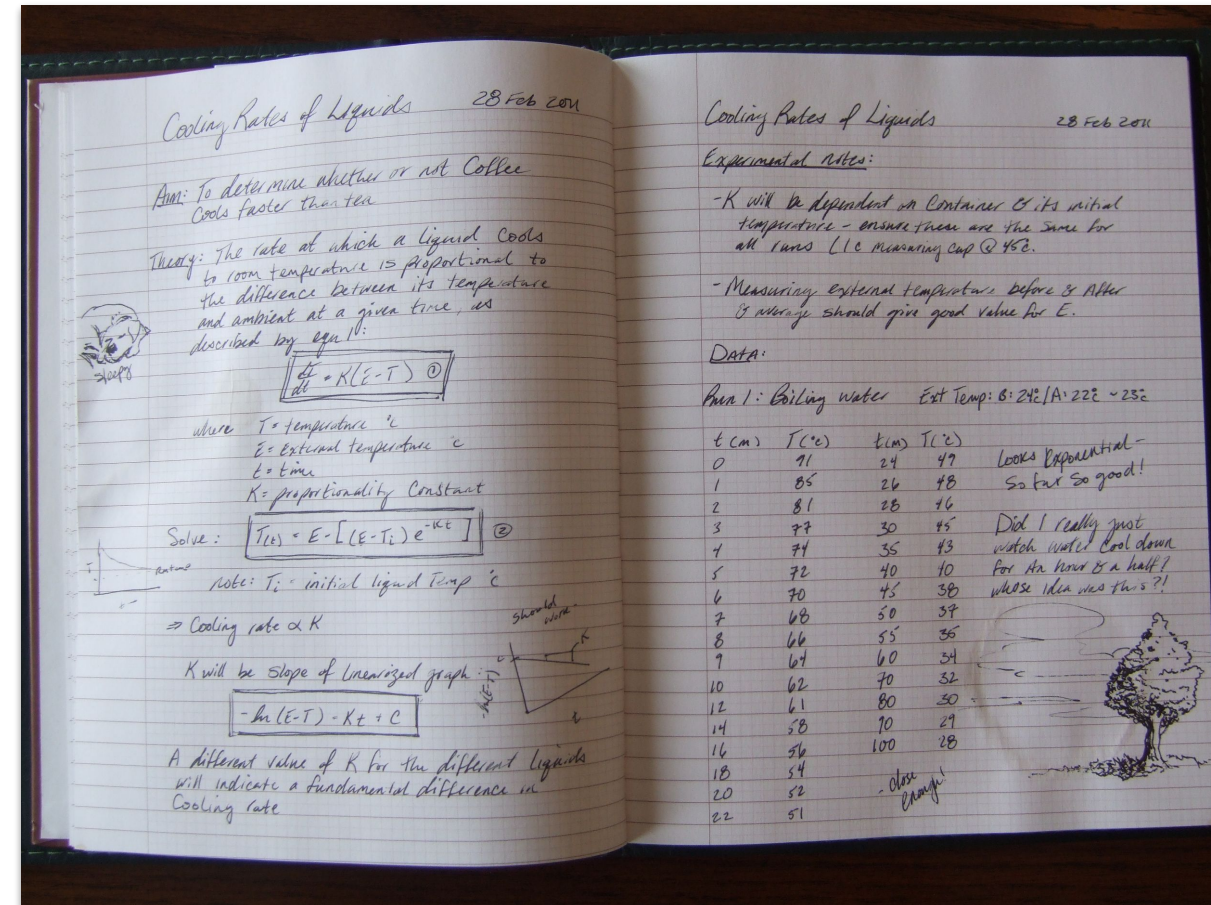 Cooling Rates of Liquids 28 Feb 2011
Aim: To determine whether or not Coffee
Cools faster than tea
Theory: The rate at which a liquid cools
to room temperature is proportional to
the difference between its temperature
and ambient at a given time, as
described by eqn 1:
sleepy
dT/dt = K(E-T) ①
where T = temperature °C
E = External temperature °C
t = time
K = proportionality Constant
Solve: T(t) = E - [(E-Ti) e^-Kt] ②
T
note: Ti = initial liquid Temp °C
⇒ Cooling rate ∝ K
should
work
K
K will be slope of linearized graph:
-ln(E-T)
-ln(E-T) = Kt + C
A different value of K for the different liquids
will indicate a fundamental difference in
Cooling rate
Cooling Rates of Liquids 28 Feb 2011
Experimental notes:
- K will be dependent on Container & its initial
temperature - ensure these are the same for
all runs measuring cup @ 45°C.
- Measuring external temperature before & After
& average should give good value for E.
DATA:
Run 1: Boiling water Ext Temp: B: 24°C/A: 22°C ~23°C
t(m) T(°C) t(m) T(°C)
0 91 24 49
1 85 26 48
2 81 28 46
3 77 30 45
4 74 35 43
5 72 40 40
6 70 45 38
7 68 50 37
8 66 55 35
9 64 60 34
10 62 70 32
12 61 80 30
14 58 90 29
16 56 100 28
18 54
20 52
22 51
- close
enough!
Looks Exponential -
So far So good!
Did I really just
watch water cool down
for An hour & a half?
whose idea was this?!